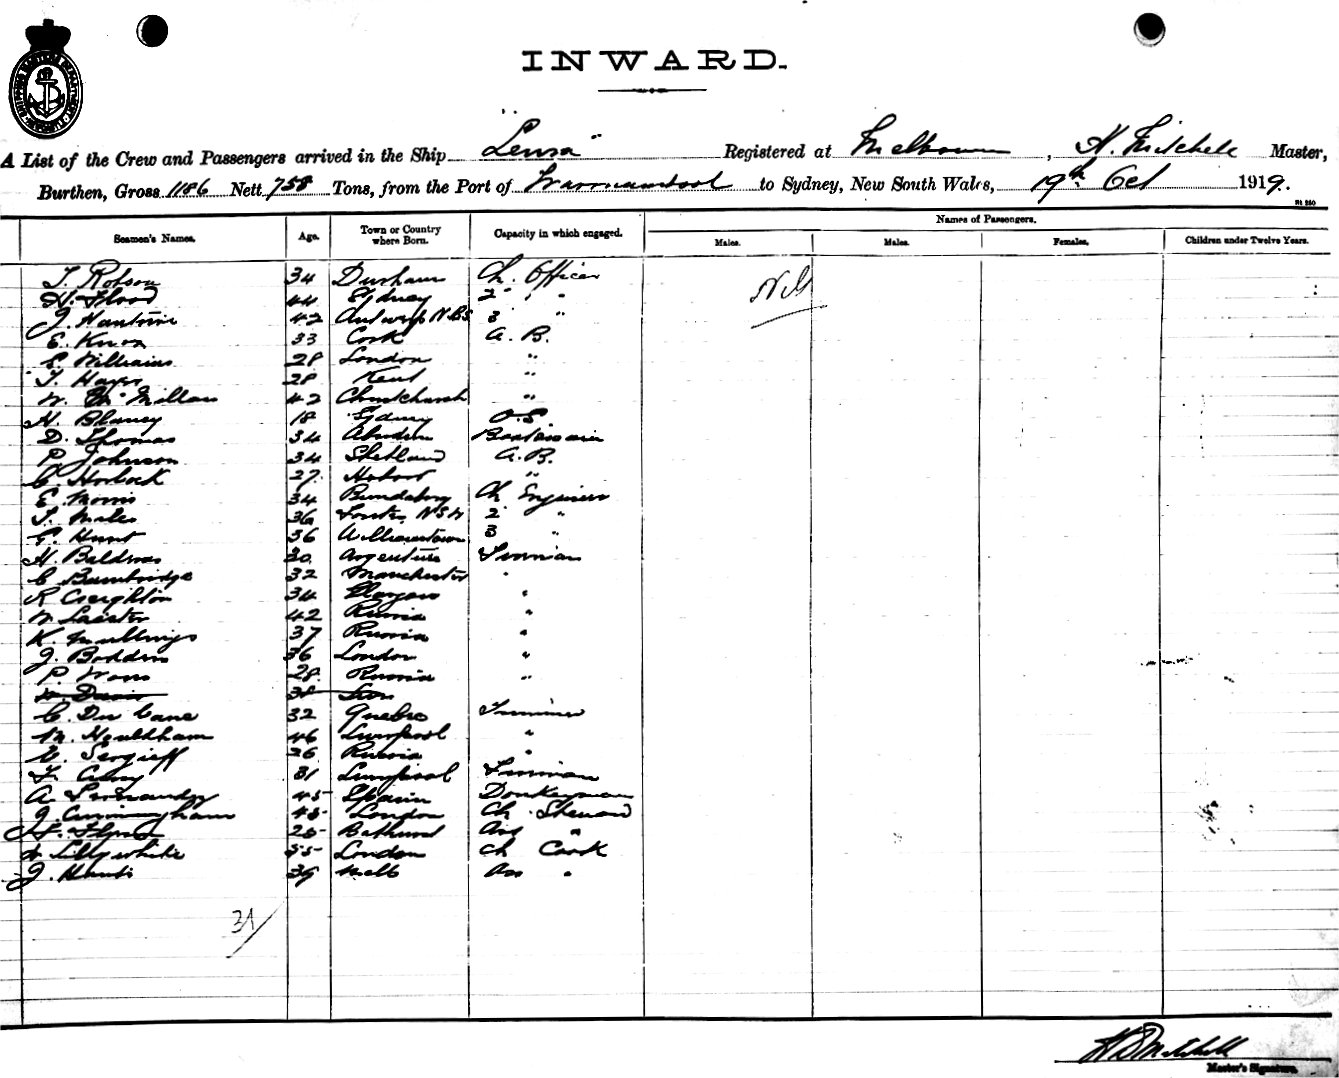 INWARD.
A List of the Crew and Passengers arrived in the Ship "Lewsa" Registered at Melbourne, H. Mitchell Master,
Burthen, Gross 1186 Nett 758 Tons, from the Port of Warrnambool to Sydney, New South Wales, 19th Oct 1919.
Seamen's Names. Age. Town or Country where Born. Capacity in which engaged. Names of Passengers.
Males. Males. Females. Children under Twelve Years.
T. Robson 34 Durham Ch. Officer
H. Flood 44 Sydney 2 " " Nil
J. 42 Antwerp 3 "
E. Knox 33 Cork A. B.
E. Williams 28 London "
T. Hayes 28 Kent "
W. McMillan 42 Christchurch "
H. Blaney 18 Sydney O.S.
D. Thomas 34 Aberdeen Boatswain
P. Johnson 34 Shetland A. B.
C. Horlock 27 Hobart "
E. Morris 34 Bundaberg Ch Engineer
T. Miles 36 NSW 2 "
E. Hunt 36 Williamstown 3 "
H. 30 Argentine Fireman
C Bambridge 32 Manchester "
R Creighton 34 Glasgow "
W. 42 Russia "
K. 37 Russia "
J. 36 London "
P. 28. Russia "
38
C. Du Cane 32 Quebec Trimmer
46 Liverpool "
Sergieff 26 Russia "
31 Liverpool Fireman
A. Fernandez 45 Spain Donkeyman
J. Cunningham 45 London Ch Steward
Flynn 25 Bathurst Ass "
Lillywhite 55 London Ch Cook
J. 39 Melb Ass "
31
H S Mitchell
Master's Signature.